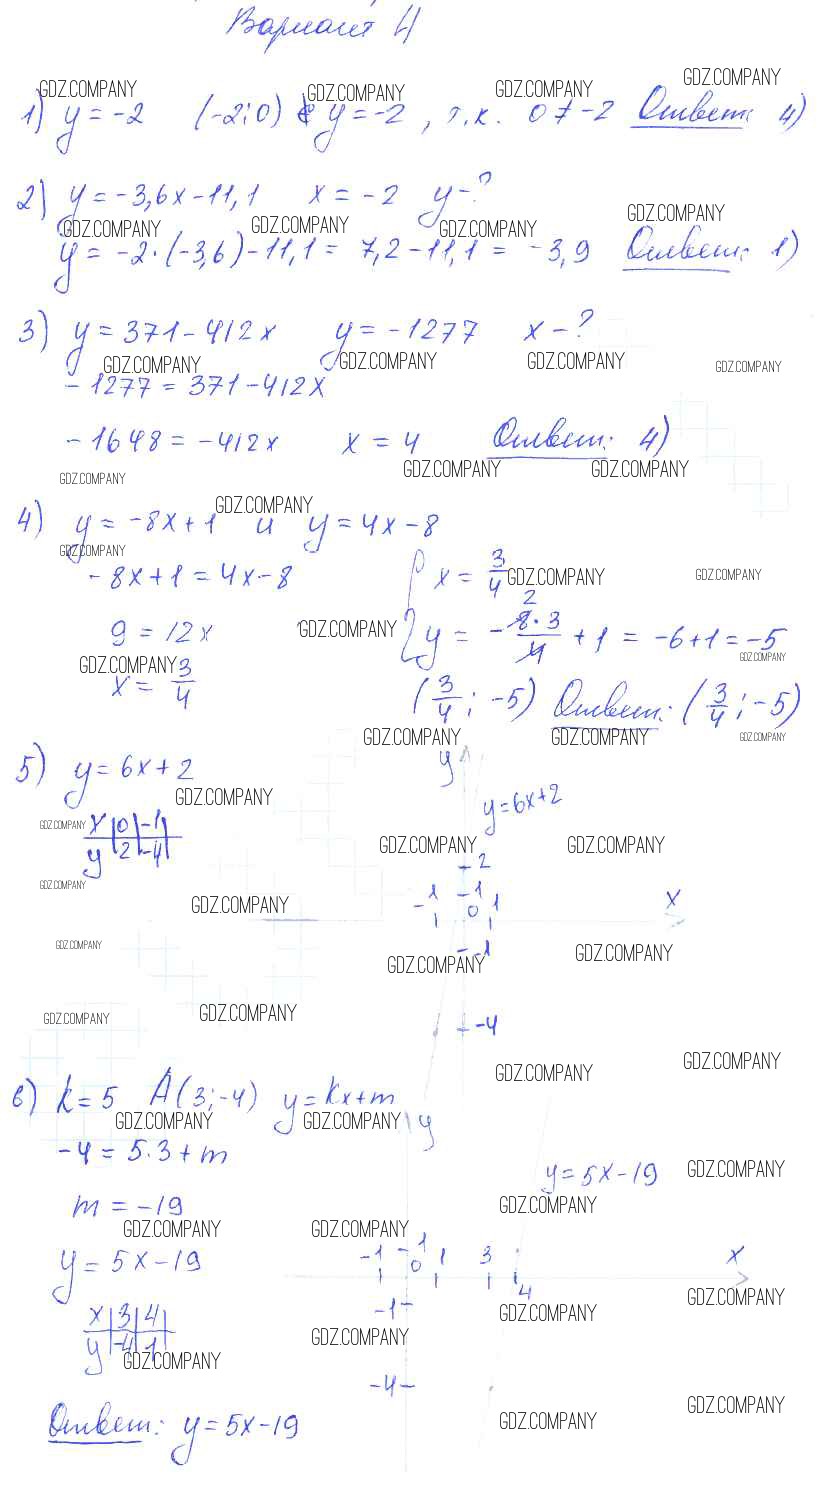 Вариант 4
GDZ.COMPANY GDZ.COMPANY GDZ.COMPANY GDZ.COMPANY
1) y = -2 (-2; 0) ∉ y = -2, т.к. 0 ≠ -2 Ответ: 4)
2) y = -3,6x - 11,1 x = -2 y - ?
GDZ.COMPANY GDZ.COMPANY GDZ.COMPANY GDZ.COMPANY
y = -2·(-3,6) - 11,1 = 7,2 - 11,1 = -3,9 Ответ: 1)
3) y = 371 - 412x y = -1277 x - ?
GDZ.COMPANY GDZ.COMPANY GDZ.COMPANY GDZ.COMPANY
-1277 = 371 - 412x
-1648 = -412x x = 4 Ответ: 4)
GDZ.COMPANY GDZ.COMPANY GDZ.COMPANY
GDZ.COMPANY
4) y = -8x + 1 и y = 4x - 8
GDZ.COMPANY
-8x + 1 = 4x - 8 { x = 3/4
GDZ.COMPANY GDZ.COMPANY
9 = 12x y = -8·3/4 + 1 = -6 + 1 = -5
2
GDZ.COMPANY GDZ.COMPANY GDZ.COMPANY
x = 3/4 (3/4; -5) Ответ: (3/4; -5)
GDZ.COMPANY GDZ.COMPANY GDZ.COMPANY
5) y = 6x + 2 y
GDZ.COMPANY
y = 6x + 2
x | 0 | -1 |
y | 2 | -4 |
GDZ.COMPANY GDZ.COMPANY GDZ.COMPANY
2
GDZ.COMPANY GDZ.COMPANY
-1 1 0 1 x
-1
GDZ.COMPANY GDZ.COMPANY GDZ.COMPANY
GDZ.COMPANY GDZ.COMPANY
-4
GDZ.COMPANY GDZ.COMPANY
6) k = 5 A(3; -4) y = kx + m
GDZ.COMPANY GDZ.COMPANY y
-4 = 5·3 + m
y = 5x - 19 GDZ.COMPANY
m = -19 GDZ.COMPANY
GDZ.COMPANY GDZ.COMPANY
y = 5x - 19 -1 1 0 1 3 4 x
GDZ.COMPANY GDZ.COMPANY
-1
x | 3 | 4 |
y | -4 | 1 |
GDZ.COMPANY GDZ.COMPANY
-4
GDZ.COMPANY GDZ.COMPANY
Ответ: y = 5x - 19